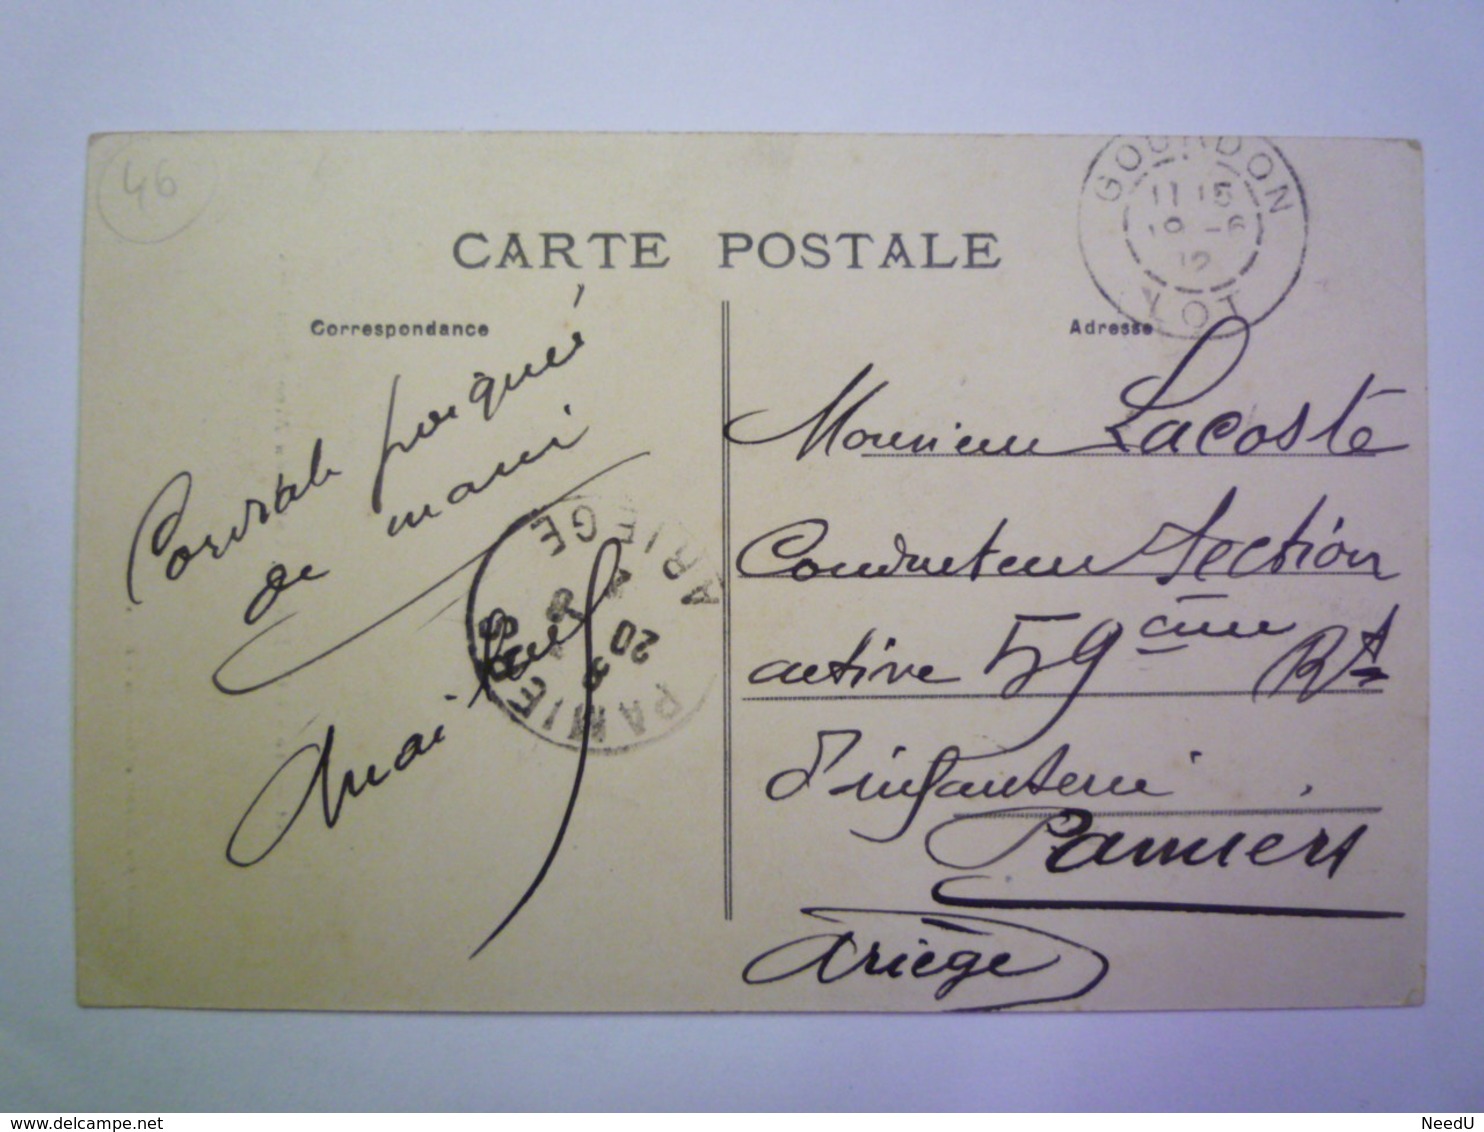 46
GOURDON
11 15
19 -6
12
LOT
CARTE POSTALE
Correspondance
Adresse
Cordiale poignée
de main
Monsieur Lacoste
Conducteur Section
active 59ème Rt
d'infanterie
Pamiers
Ariège
PAMIERS
20 - 6
ARIEGE
NeedU
www.delcampe.net